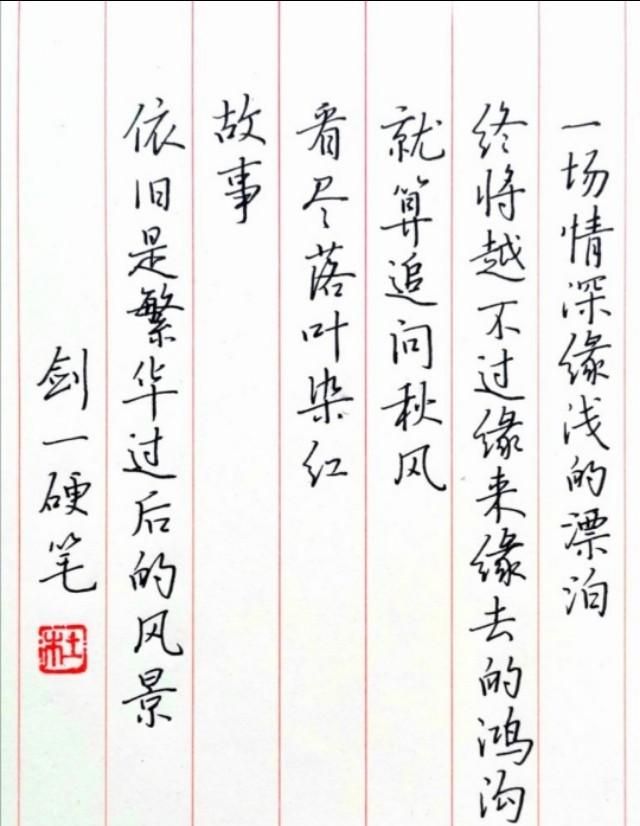 一场情深缘浅的漂泊
终将越不过缘来缘去的鸿沟
就算追问秋风
看尽落叶染红
故事
依旧是繁华过后的风景
剑一硬笔
杜